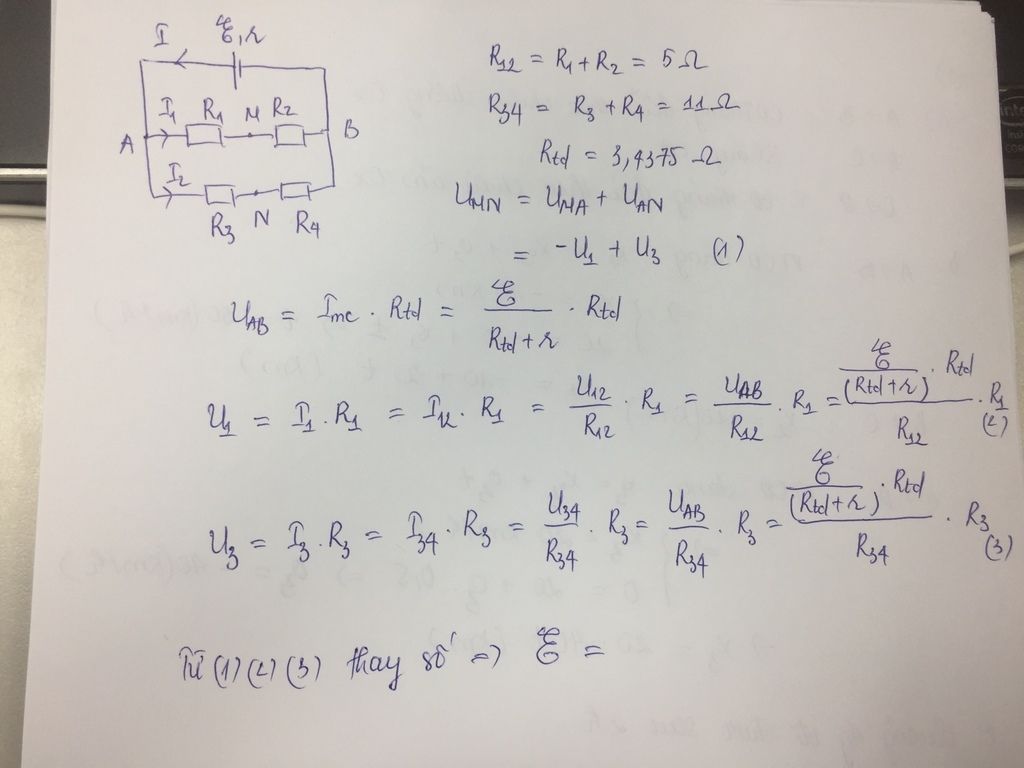 I ℰ, r
I₁ R₁ M R₂
A B
I₂
R₃ N R₄
R₁₂ = R₁ + R₂ = 5 Ω
R₃₄ = R₃ + R₄ = 11 Ω
Rtđ = 3,4375 Ω
U_MN = U_MA + U_AN
= -U₁ + U₃ (1)
U_AB = Imc . Rtđ = ℰ / (Rtđ + r) . Rtđ
U₁ = I₁ . R₁ = I₁₂ . R₁ = U₁₂ / R₁₂ . R₁ = U_AB / R₁₂ . R₁ = (ℰ / (Rtđ + r) . Rtđ) / R₁₂ . R₁ (2)
U₃ = I₃ . R₃ = I₃₄ . R₃ = U₃₄ / R₃₄ . R₃ = U_AB / R₃₄ . R₃ = (ℰ / (Rtđ + r) . Rtđ) / R₃₄ . R₃ (3)
Từ (1) (2) (3) thay số => ℰ =